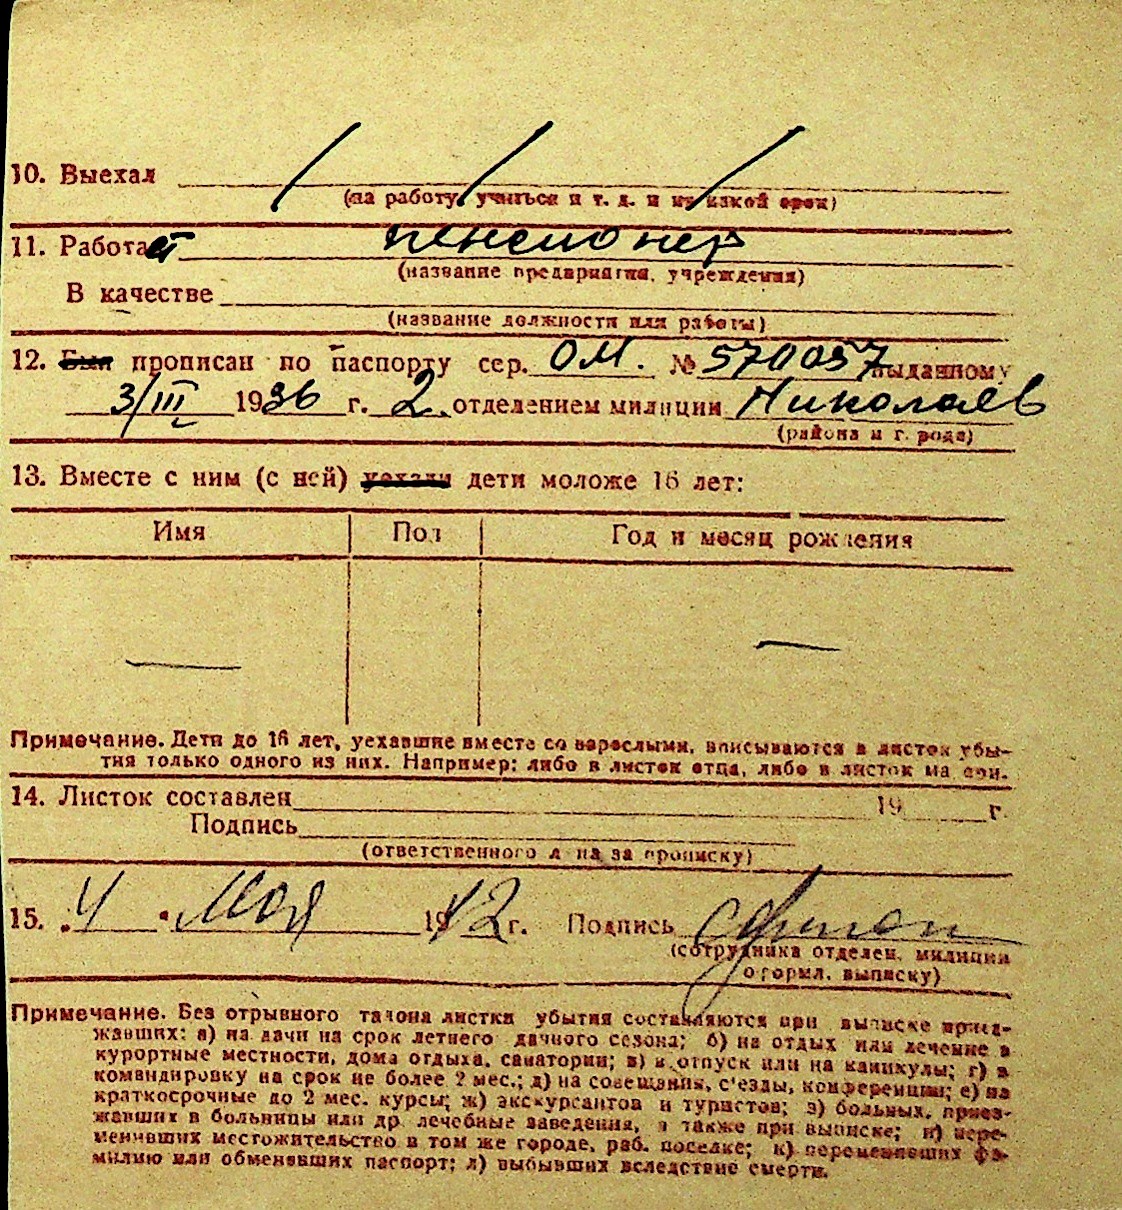 10. Выехал
(на работу, учиться и т. д. и на какой срок)
11. Работает пенсионер
(название предприятия, учреждения)
В качестве
(название должности или работы)
12. Был прописан по паспорту сер. ОМ. № 570057 выданному
3/III 1936 г. 2. отделением милиции Николаев
(района и г. рода)
13. Вместе с ним (с ней) уехали дети моложе 16 лет:
Имя Пол Год и месяц рождения
— —
Примечание. Дети до 16 лет, уехавшие вместе со взрослыми, вписываются в листок убы-
тия только одного из них. Например: либо в листок отца, либо в листок ма ери.
14. Листок составлен 19 г.
Подпись
(ответственного л на за прописку)
15. „4 " Мая 1942 г. Подпись
(сотрудника отделен. милиции
оформл. выписку)
Примечание. Без отрывного талона листки убытия составляются при выписке приез-
жавших: а) на дачи на срок летнего дачного сезона; б) на отдых или лечение в
курортные местности, дома отдыха, санатории; в) в отпуск или на каникулы; г) в
командировку на срок не более 2 мес.; д) на совещания, с'езды, конференции; е) на
краткосрочные до 2 мес. курсы; ж) экскурсантов и туристов; з) больных, приез-
жавших в больницы или др. лечебные заведения, а также при выписке; и) пере-
менивших местожительство в том же городе, раб. поселке; к) переменивших фа-
милию или обменявших паспорт; л) выбывших вследствие смерти.